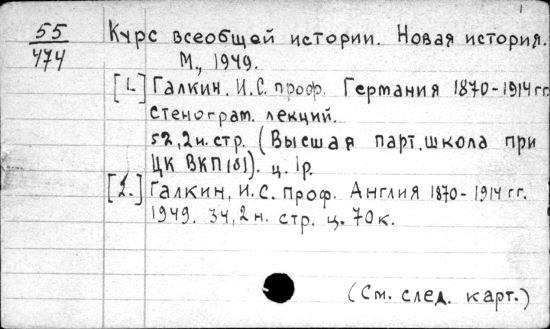 55
474
Курс всеобщей истории. Новая история.
М., 1949.
[1.] Галкин. И.С. проф. Германия 1870-1914 гг.
Стенограм. лекций.
52, 2 н. стр. (Высшая парт. школа при
ЦК ВКП(б)). ц. 1р.
[2.] Галкин, И.С. проф. Англия 1870-1914 гг.
1949. 34, 2 н. стр. ц. 70к.
(См. след. карт.)